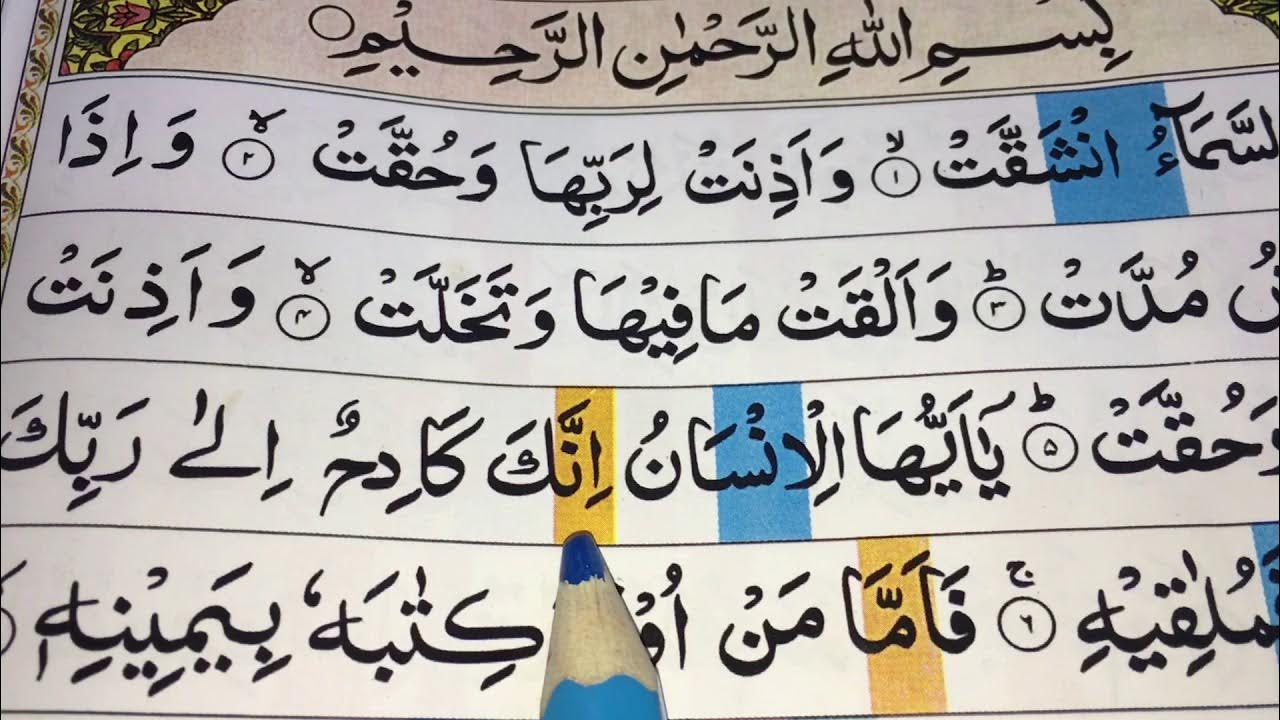 بِسْمِ اللّٰهِ الرَّحْمٰنِ الرَّحِيْمِ
السَّمَآءُ انْشَقَّتْ ۙ‏﴿۱﴾ وَاَذِنَتْ لِرَبِّهَا وَحُقَّتْ ۙ‏﴿۲﴾ وَاِذَا
مُدَّتْ ؕ‏﴿۳﴾ وَاَلْقَتْ مَا فِيْهَا وَتَخَلَّتْ ۙ‏﴿۴﴾ وَاَذِنَتْ
وَحُقَّتْ ؕ‏﴿۵﴾ يٰۤاَيُّهَا الْاِنْسَانُ اِنَّكَ كَادِحٌ اِلٰى رَبِّكَ
مُلٰقِيْهِ ۚ‏﴿۶﴾ فَاَمَّا مَنْ كِتٰبَهٗ بِيَمِيْنِهٖ